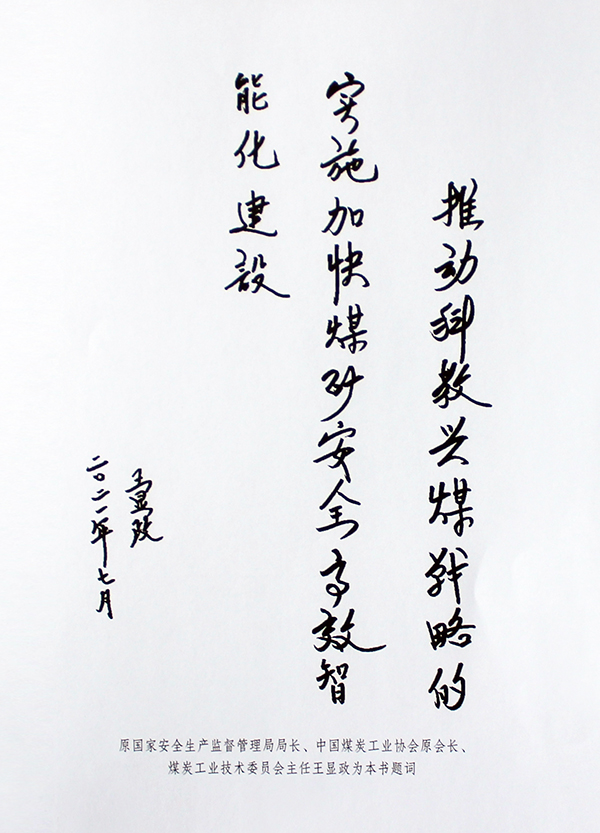 推动科教兴煤战略的
实施加快煤矿安全高效智
能化建设
王显政
二〇二一年七月
原国家安全生产监督管理局局长、中国煤炭工业协会原会长、
煤炭工业技术委员会主任王显政为本书题词